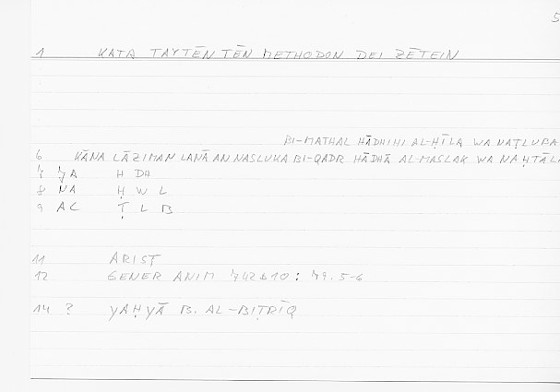 5
1 KATA TAYTĒN TĒN METHODON DEI ZĒTEIN
BI-MATHAL HĀDHIHI AL-ḤĪLA WA NAṬLUBA
6 KĀNA LĀZIMAN LANĀ AN NASLUKA BI-QADR HĀDHĀ AL-MASLAK WA NAḤTĀL
7A H DH
8 NA Ḥ W L
9 AC Ṭ L B
11 ARIST
12 GENER ANIM 742b10: 79.5-6
14 ? YAḤYĀ B. AL-BIṬRĪQ